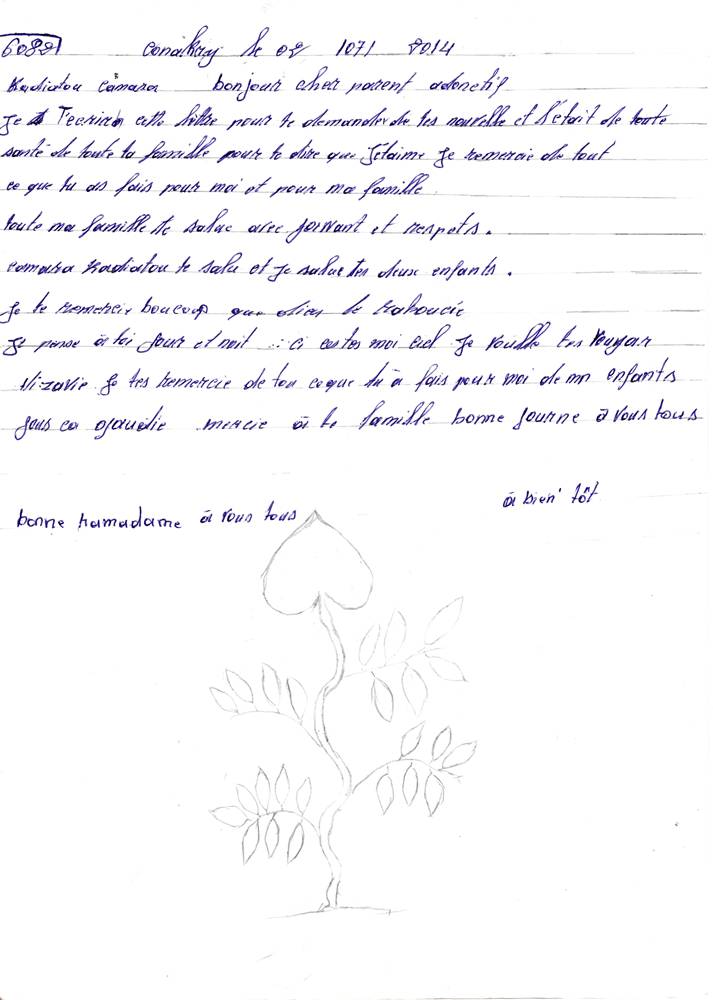 6089 conakry le 02 1071 2014
Kadiatou camara bonjour cher parent adonctif
Je T'ecrire cette lettre pour te demander de tes nouvelle et l'état de toute
santé de toute ta famille pour te dire que J'etaime Je remercie de tout
ce que tu as fais pour moi et pour ma famille
toute ma famille te salue avec et respets.
camara Kadiatou te salu et je salue tes deux enfants.
Je te remercie boucoup que dieu te
Je pense à toi jour et nuit ci moi Je tes
Je tes remercie de tou ce que tu à fais pour moi de mn enfants
ca mercie à te famille bonne journe à vous tous
à bien tôt
bonne ramadame à vous tous